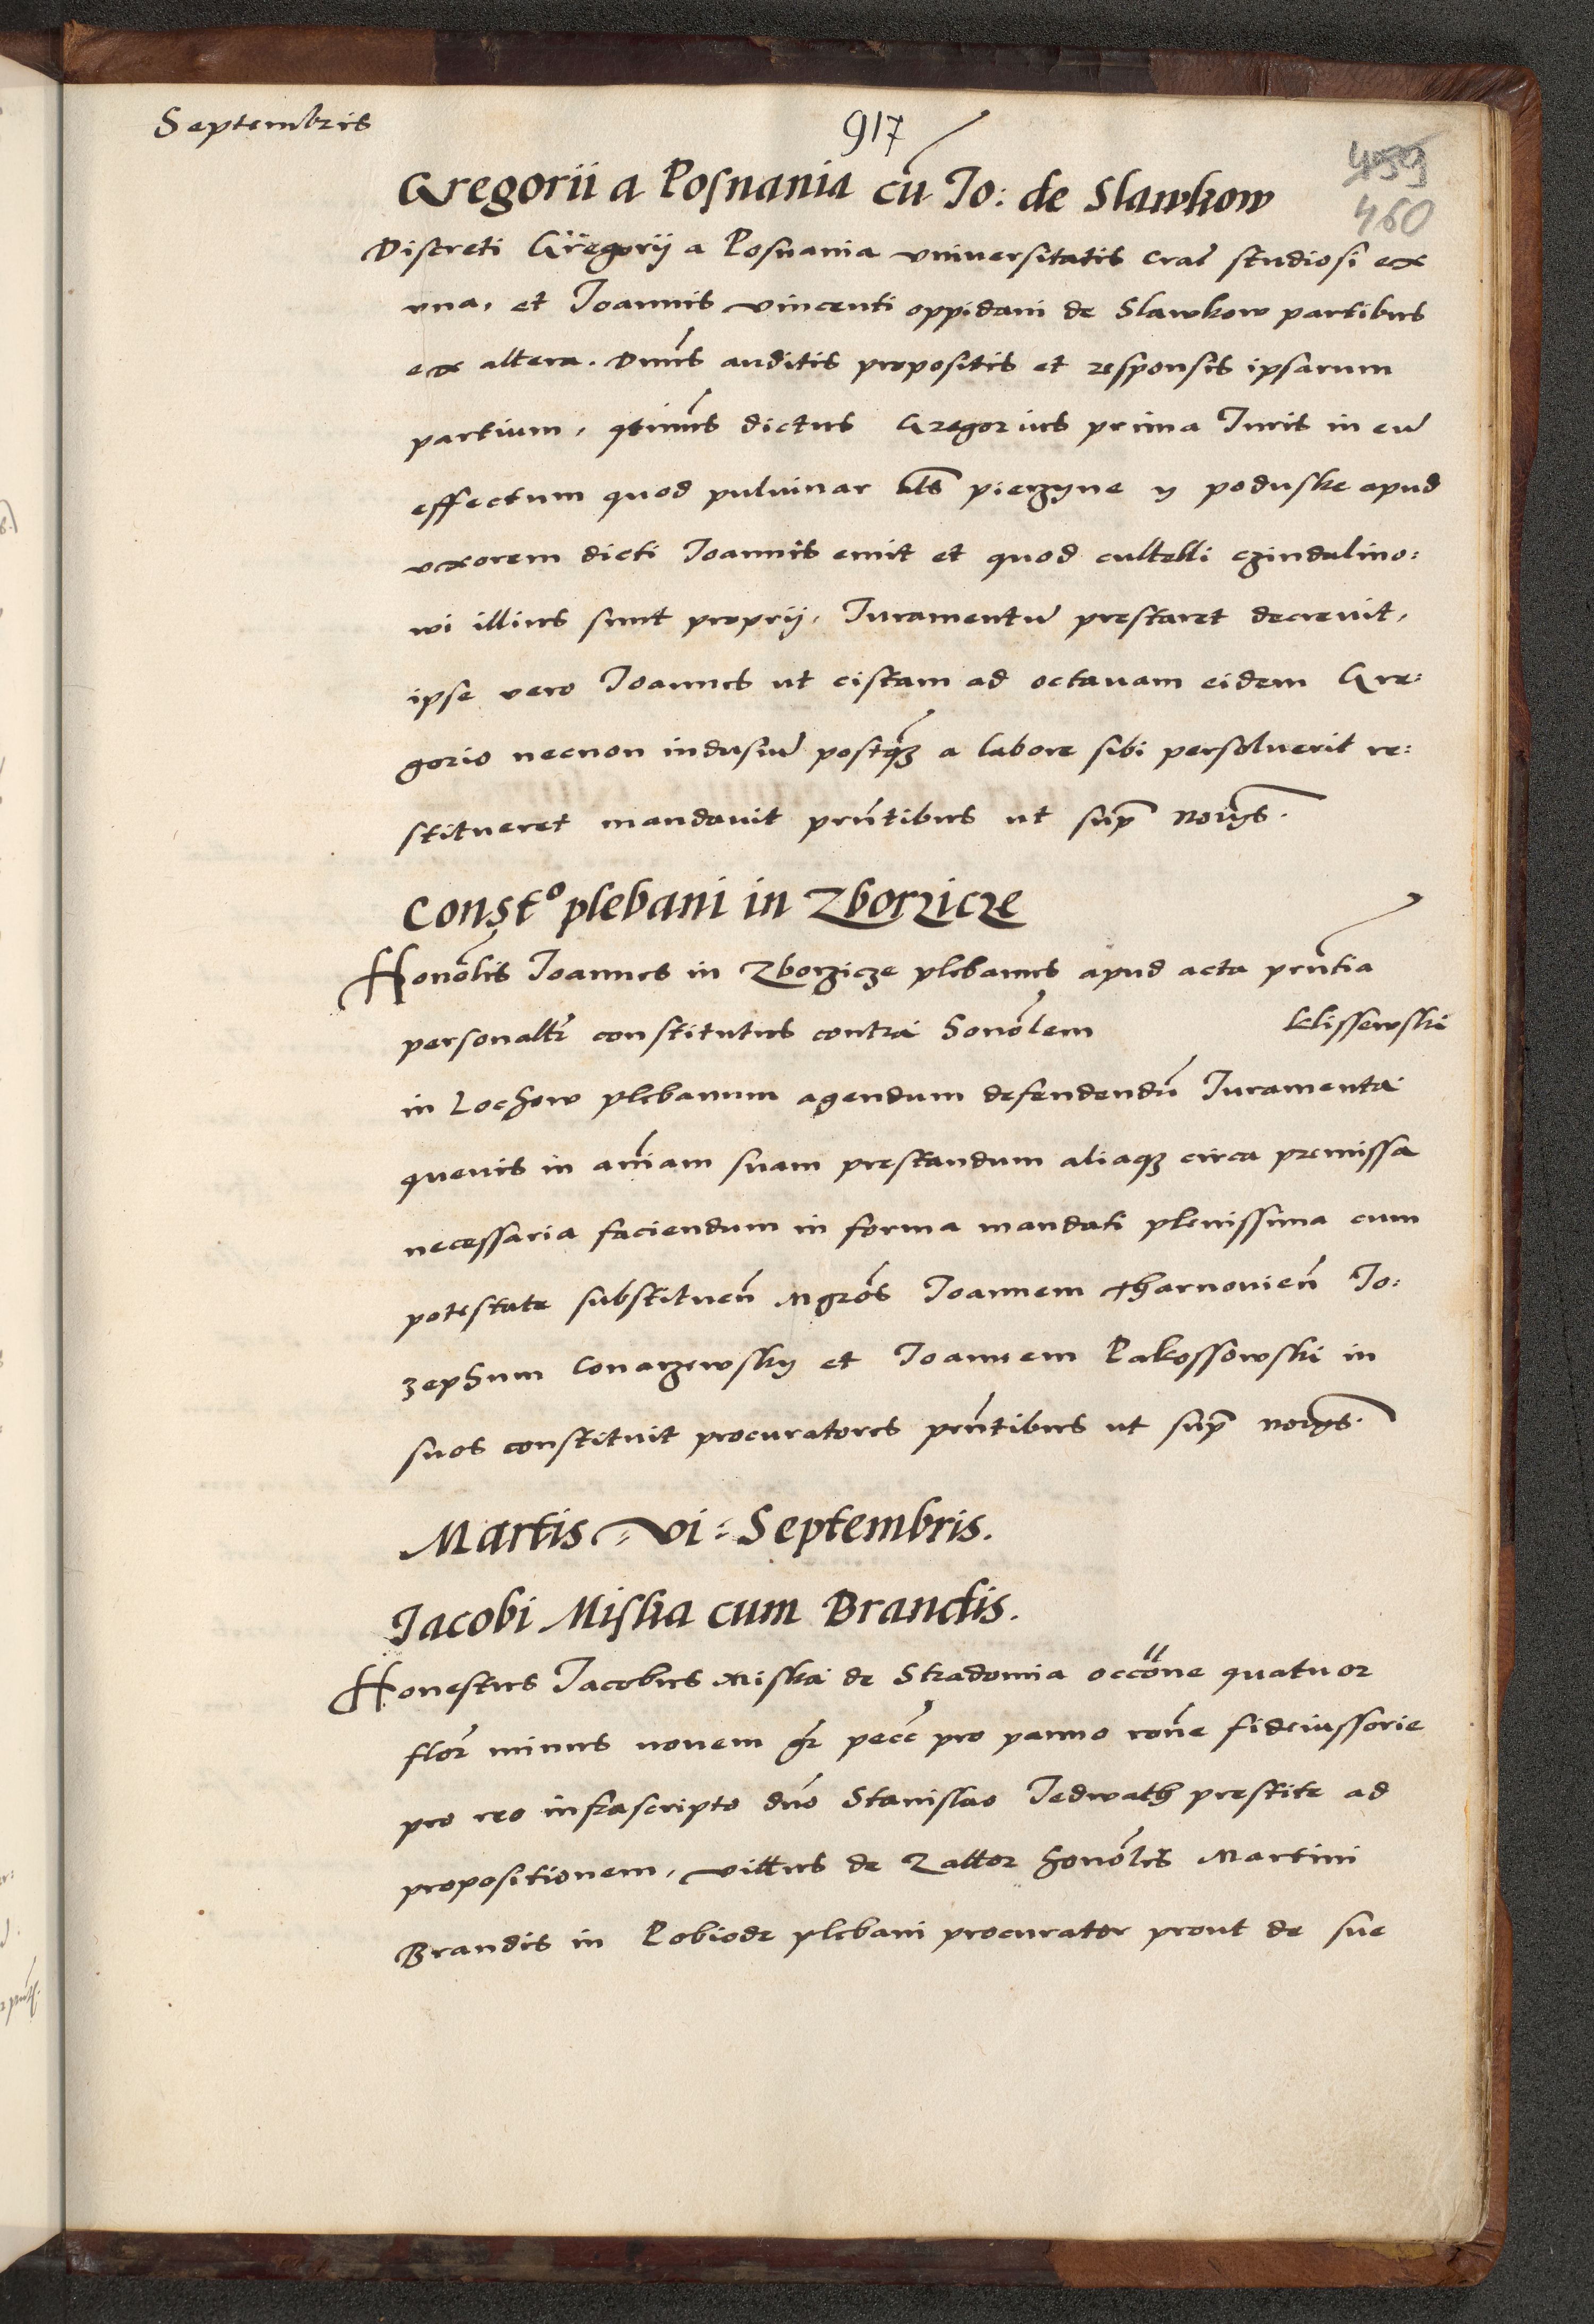 Septembris
917
459
460
Gregorii a Posnania cū Jo: de Slawkow
Discreti Gregorij a Posnania vniuersitatis Crac̄ studiosi ex
vna, et Joannis Vincenti oppidani de Slawkow partibus
ex altera. Dn̄us auditis propositis et responsis ipsarum
partium, q̄tinus dictus Gregorius prima Juris in eū
effectum quod puluinar als pierzyne y poduske apud
vxorem dicti Joannis emit et quod cultelli czindalino:
wi illius sunt proprij, Juramentū prestaret decreuit,
ipse vero Joannes ut cistam ad octauam eidem Gre:
gorio necnon indusiū postq̄ȝ a labore sibi persoluerit re:
stitueret mandauit prn̄tibus ut sup̄ nor̄ys.
Constº plebani in Zborzicze
Honōlis Joannes in Zborzicze plebanus apud acta prn̄tia
personaltr̄ constitutus contra honōlem Klissewski
in Lochow plebanum agendum defendendū Juramenta
queuis in aīam suam prestandum aliaqȝ circa premissa
necessaria faciendum in forma mandati plenissima cum
potestate substituen̄ Mgrōs Joannem Tharnouien̄ Jo:
zephum Conarzewsky et Joannem Pakossowski in
suos constituit procuratores prn̄tibus ut sup̄ norys.
Martis vi Septembris.
Jacobi Miska cum Brandis.
Honestus Jacobus Miska de Stradomia occōne quatuor
flor̄ minus nouem gr̄ pecc̄ pro panno rōne fideiussorie
pro reo infrascripto dn̄o Stanislao Jedwath prestite ad
propositionem, Vittus de Zattor honōlis Martini
Brandis in Pobiedr plebani procurator prout de sue